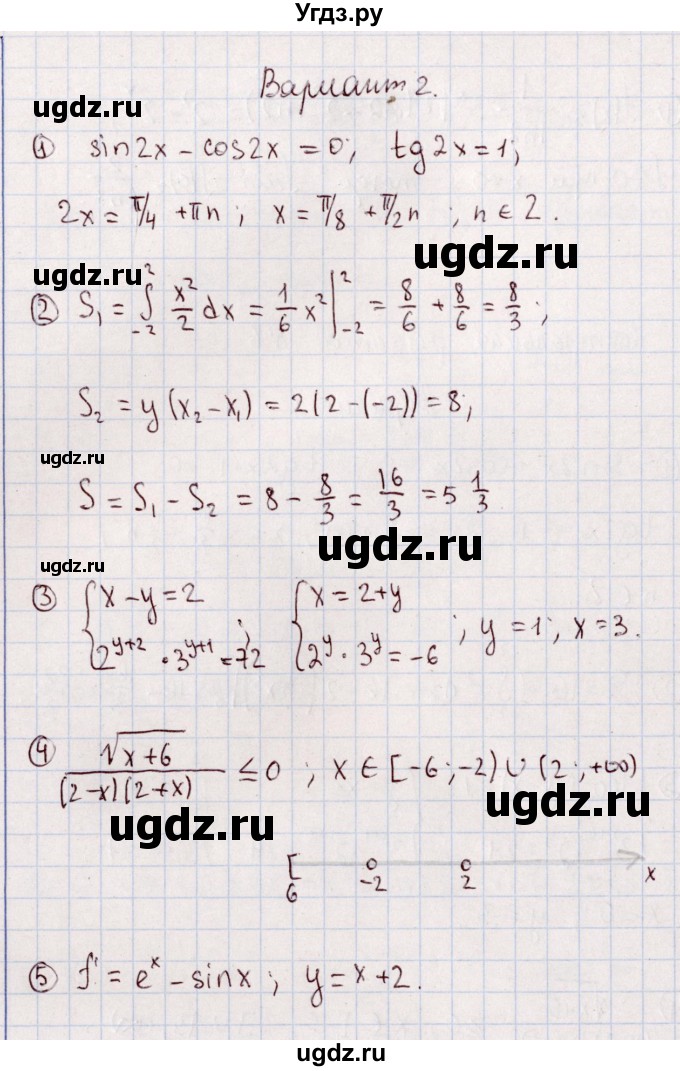 Угдз.ру
Вариант 2.
ugdz.ru
① sin2x - cos2x = 0; tg 2x = 1;
2x = π/4 + πn; x = π/8 + π/2 n; n ∈ Z.
ugdz.ru
ugdz.ru
② S₁ = ∫₋₂² x²/2 dx = 1/6 x² |₋₂² = 8/6 + 8/6 = 8/3;
S₂ = y (x₂ - x₁) = 2(2 - (-2)) = 8;
ugdz.ru
S = S₁ - S₂ = 8 - 8/3 = 16/3 = 5 1/3
ugdz.ru
ugdz.ru
③ { x - y = 2 { x = 2 + y
2^(y+2) · 3^(y+1) = 72; 2^y · 3^y = -6; y = 1; x = 3.
ugdz.ru
④ √(x+6) / (2-x)(2+x) ≤ 0; x ∈ [-6; -2) ∪ (2; +∞)
ugdz.ru
ugdz.ru
6 -2 2 x
⑤ f' = e^x - sinx; y = x + 2.
ugdz.ru
ugdz.ru